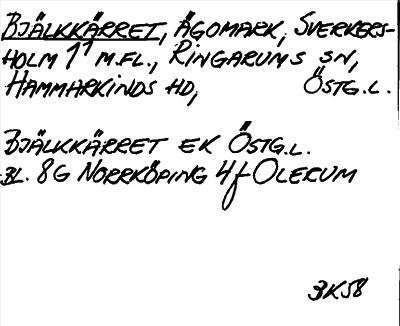 BJÄLKKÄRRET, ÅGOMARK, SVERKERS-
HOLM 1¹ M.FL., RINGARUMS SN,
HAMMARKINDS HD, ÖSTG.L.
BJÄLKKÄRRET EK ÖSTG.L.
BL. 8G NORRKÖPING 4f OLERUM
3K58